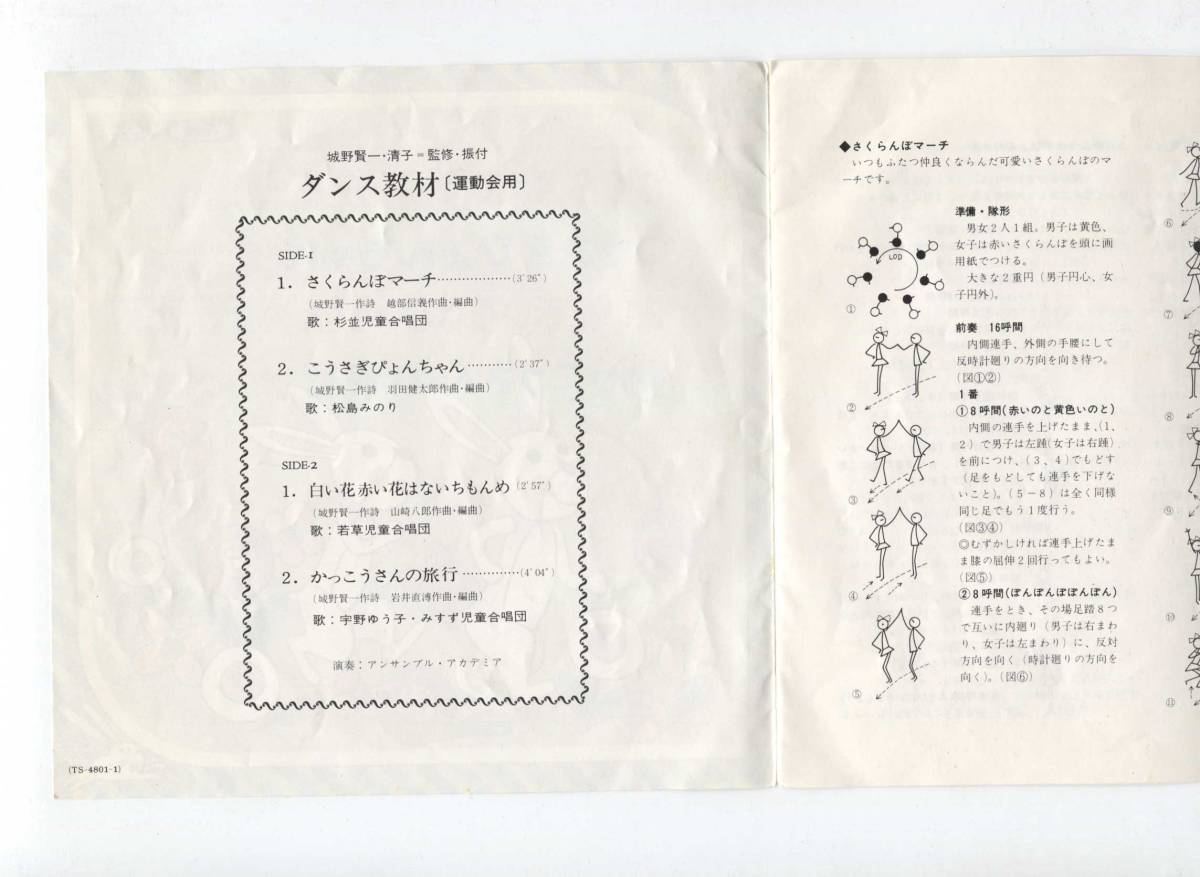 城野賢一・清子＝監修・振付
ダンス教材〔運動会用〕
SIDE-1
1．さくらんぼマーチ………………(3′26″)
(城野賢一作詩　越部信義作曲・編曲)
歌：杉並児童合唱団
2．こうさぎぴょんちゃん…………(2′37″)
(城野賢一作詩　羽田健太郎作曲・編曲)
歌：松島みのり
SIDE-2
1．白い花赤い花はないちもんめ(2′57″)
(城野賢一作詩　山崎八郎作曲・編曲)
歌：若草児童合唱団
2．かっこうさんの旅行……………(4′04″)
(城野賢一作詩　岩井直溥作曲・編曲)
歌：宇野ゆう子・みすず児童合唱団
演奏：アンサンブル・アカデミア
(TS-4801-1)
◆さくらんぼマーチ
いつもふたつ仲良くならんだ可愛いさくらんぼのマ
ーチです。
準備・隊形
男女２人１組。男子は黄色、
女子は赤いさくらんぼを頭に画
用紙でつける。
大きな２重円（男子円心、女
子円外）。
LOD
①
前奏　16呼間
内側連手、外側の手腰にして
反時計廻りの方向を向き待つ。
(図①②)
②
1番
①８呼間(赤いのと黄色いのと)
内側の連手を上げたまま、(１、
２）で男子は左踵(女子は右踵)
を前につけ、(３、４)でもどす
(足をもどしても連手を下げな
いこと)。(５－８)は全く同様
同じ足でもう１度行う。
(図③④)
③
◎むずかしければ連手上げたま
ま膝の屈伸２回行ってもよい。
(図⑤)
④
②８呼間(ぽんぽんぽぽんぽん)
連手をとき、その場足踏８つ
で互いに内廻り（男子は右まわ
り、女子は左まわり）に、反対
方向を向く（時計廻りの方向を
向く）。(図⑥)
⑤
⑥
⑦
⑧
⑨
⑩
⑪